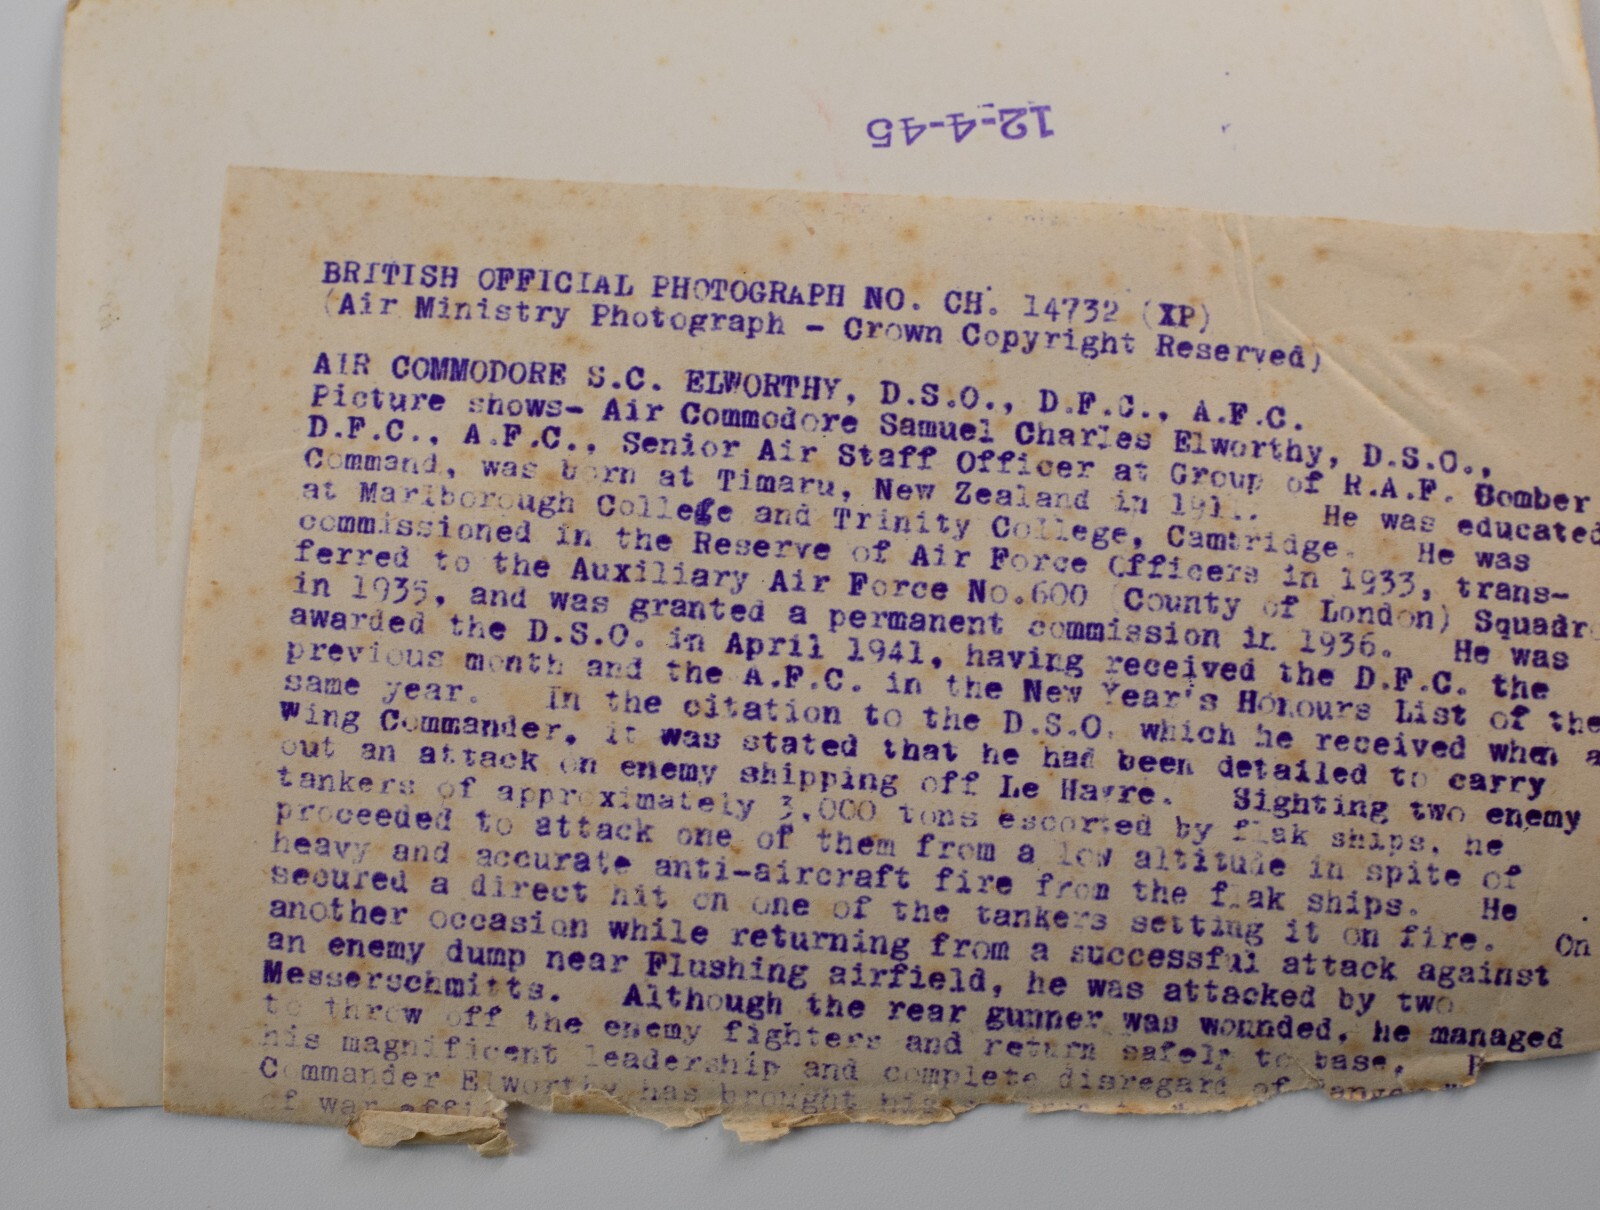 12-4-45
BRITISH OFFICIAL PHOTOGRAPH NO. CH. 14732 (XP)
(Air Ministry Photograph - Crown Copyright Reserved)
AIR COMMODORE S.C. ELWORTHY, D.S.O., D.F.C., A.F.C.
Picture shows- Air Commodore Samuel Charles Elworthy, D.S.O.,
D.F.C., A.F.C., Senior Air Staff Officer at Group of R.A.F. Bomber
Command, was born at Timaru, New Zealand in 1911. He was educated
at Marlborough College and Trinity College, Cambridge. He was
commissioned in the Reserve of Air Force Officers in 1933, trans-
ferred to the Auxiliary Air Force No.600 (County of London) Squadro
in 1935, and was granted a permanent commission in 1936. He was
awarded the D.S.O. in April 1941, having received the D.F.C. the
previous month and the A.F.C. in the New Year's Honours List of the
same year. In the citation to the D.S.O. which he received when a
Wing Commander, it was stated that he had been detailed to carry
out an attack on enemy shipping off Le Havre. Sighting two enemy
tankers of approximately 3,000 tons escorted by flak ships, he
proceeded to attack one of them from a low altitude in spite of
heavy and accurate anti-aircraft fire from the flak ships. He
secured a direct hit on one of the tankers setting it on fire. On
another occasion while returning from a successful attack against
an enemy dump near Flushing airfield, he was attacked by two
Messerschmitts. Although the rear gunner was wounded, he managed
to throw off the enemy fighters and return safely to base.
his magnificent leadership and complete disregard of
Commander Elworthy has brought his
of war